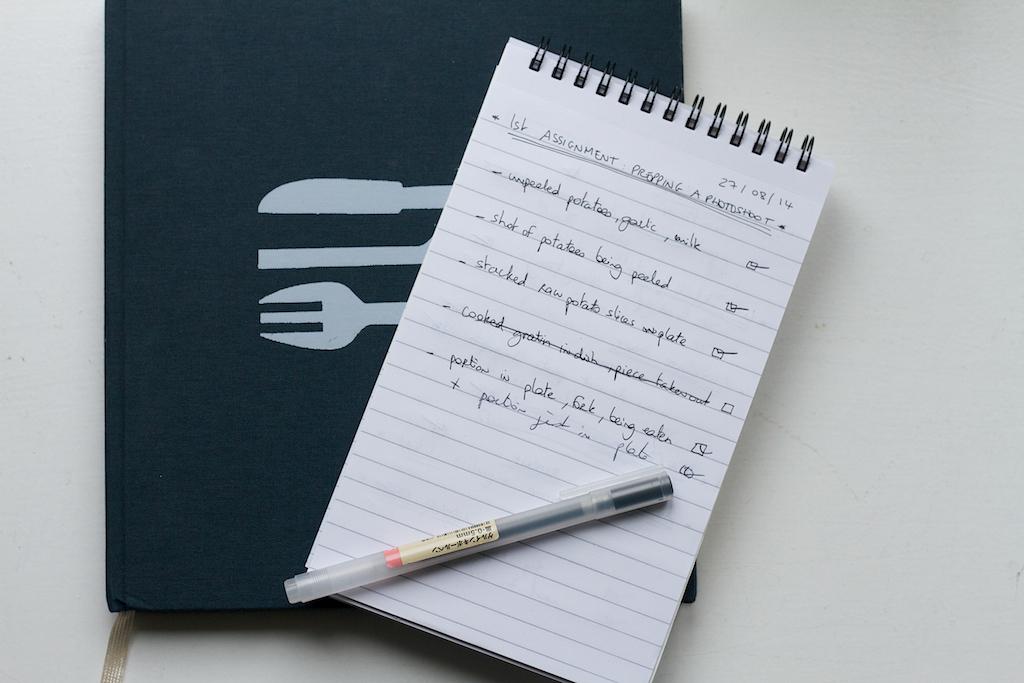 * 1st ASSIGNMENT: PREPPING A PHOTOSHOOT *
27/08/14
- unpeeled potatoes, garlic, milk
- shot of potatoes being peeled
- stacked raw potato slices on plate
- cooked gratin in dish, piece taken out
- portion in plate, fork, being eaten
+ portion just in plate
ゲルインキボールペン
0.5mm